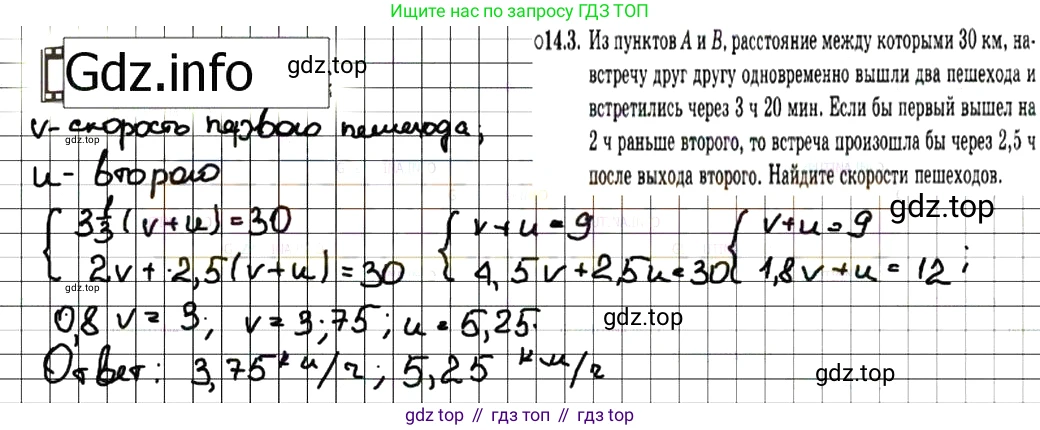 Ищите нас по запросу ГДЗ ТОП
Gdz.info
gdz.top
о14.3. Из пунктов A и B, расстояние между которыми 30 км, на-
встречу друг другу одновременно вышли два пешехода и
встретились через 3 ч 20 мин. Если бы первый вышел на
2 ч раньше второго, то встреча произошла бы через 2,5 ч
после выхода второго. Найдите скорости пешеходов.
v - скорость первого пешехода;
gdz.top
u - второго
gdz.top
{ 3 1/3 (v+u) = 30 { v+u = 9 { v+u = 9
2v + 2,5(v+u) = 30 4,5v + 2,5u = 30 1,8v + u = 12 ;
gdz.top
0,8 v = 3; v = 3,75; u = 5,25.
gdz.top
Ответ: 3,75 км/ч; 5,25 км/ч
gdz.top
gdz.top
gdz.top // гдз топ // гдз.top